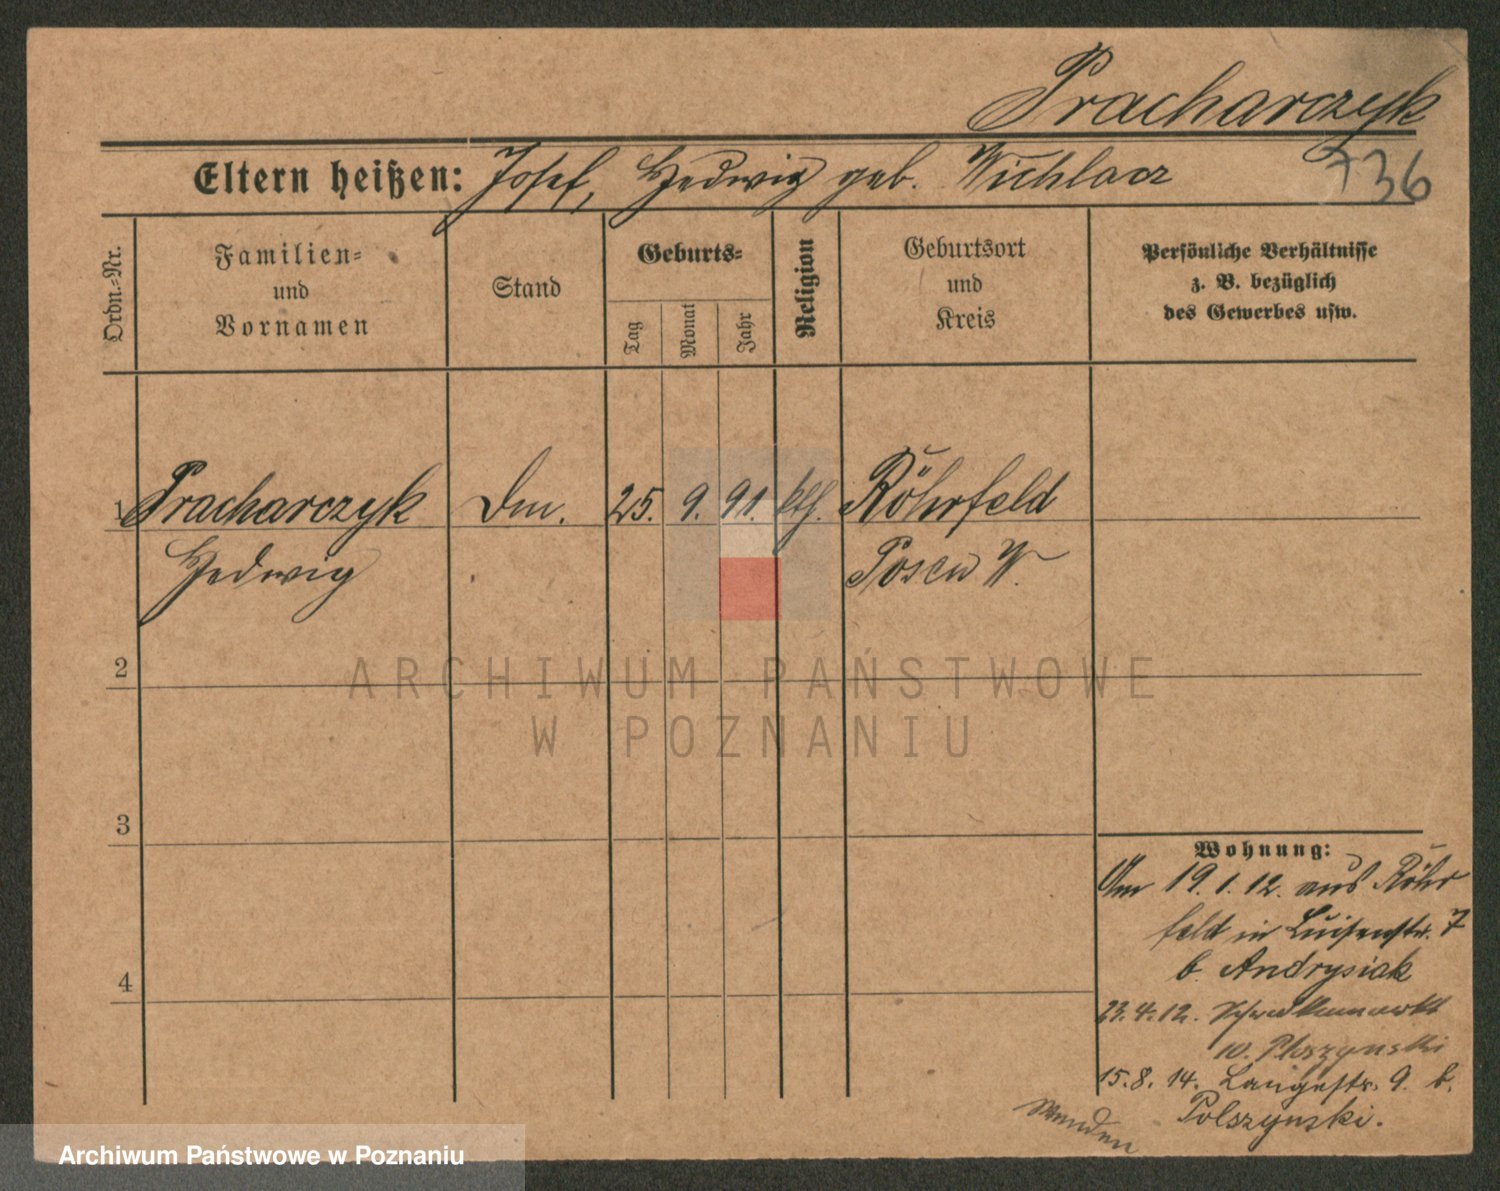 Pracharczyk
Eltern heißen: Josef, Hedwig geb. Wichlacz
736
Ordn.-Nr.
Familien-
und
Vornamen
Stand
Geburts-
Tag
Monat
Jahr
Religion
Geburtsort
und
Kreis
Persönliche Verhältnisse
z. B. bezüglich
des Gewerbes usw.
1 Pracharczyk Dm. 25. 9. 91. kth. Röhrfeld
Hedwig Posen W.
2
ARCHIWUM PAŃSTWOWE
W POZNANIU
3
4
Wohnung:
Am 19.1.12. aus Röhr
feld in Luisenstr. 7
b. Andrysiak
23.4.12.
15.8.14. Langestr. 9. b.
Polszynski.
Wenden
Archiwum Państwowe w Poznaniu